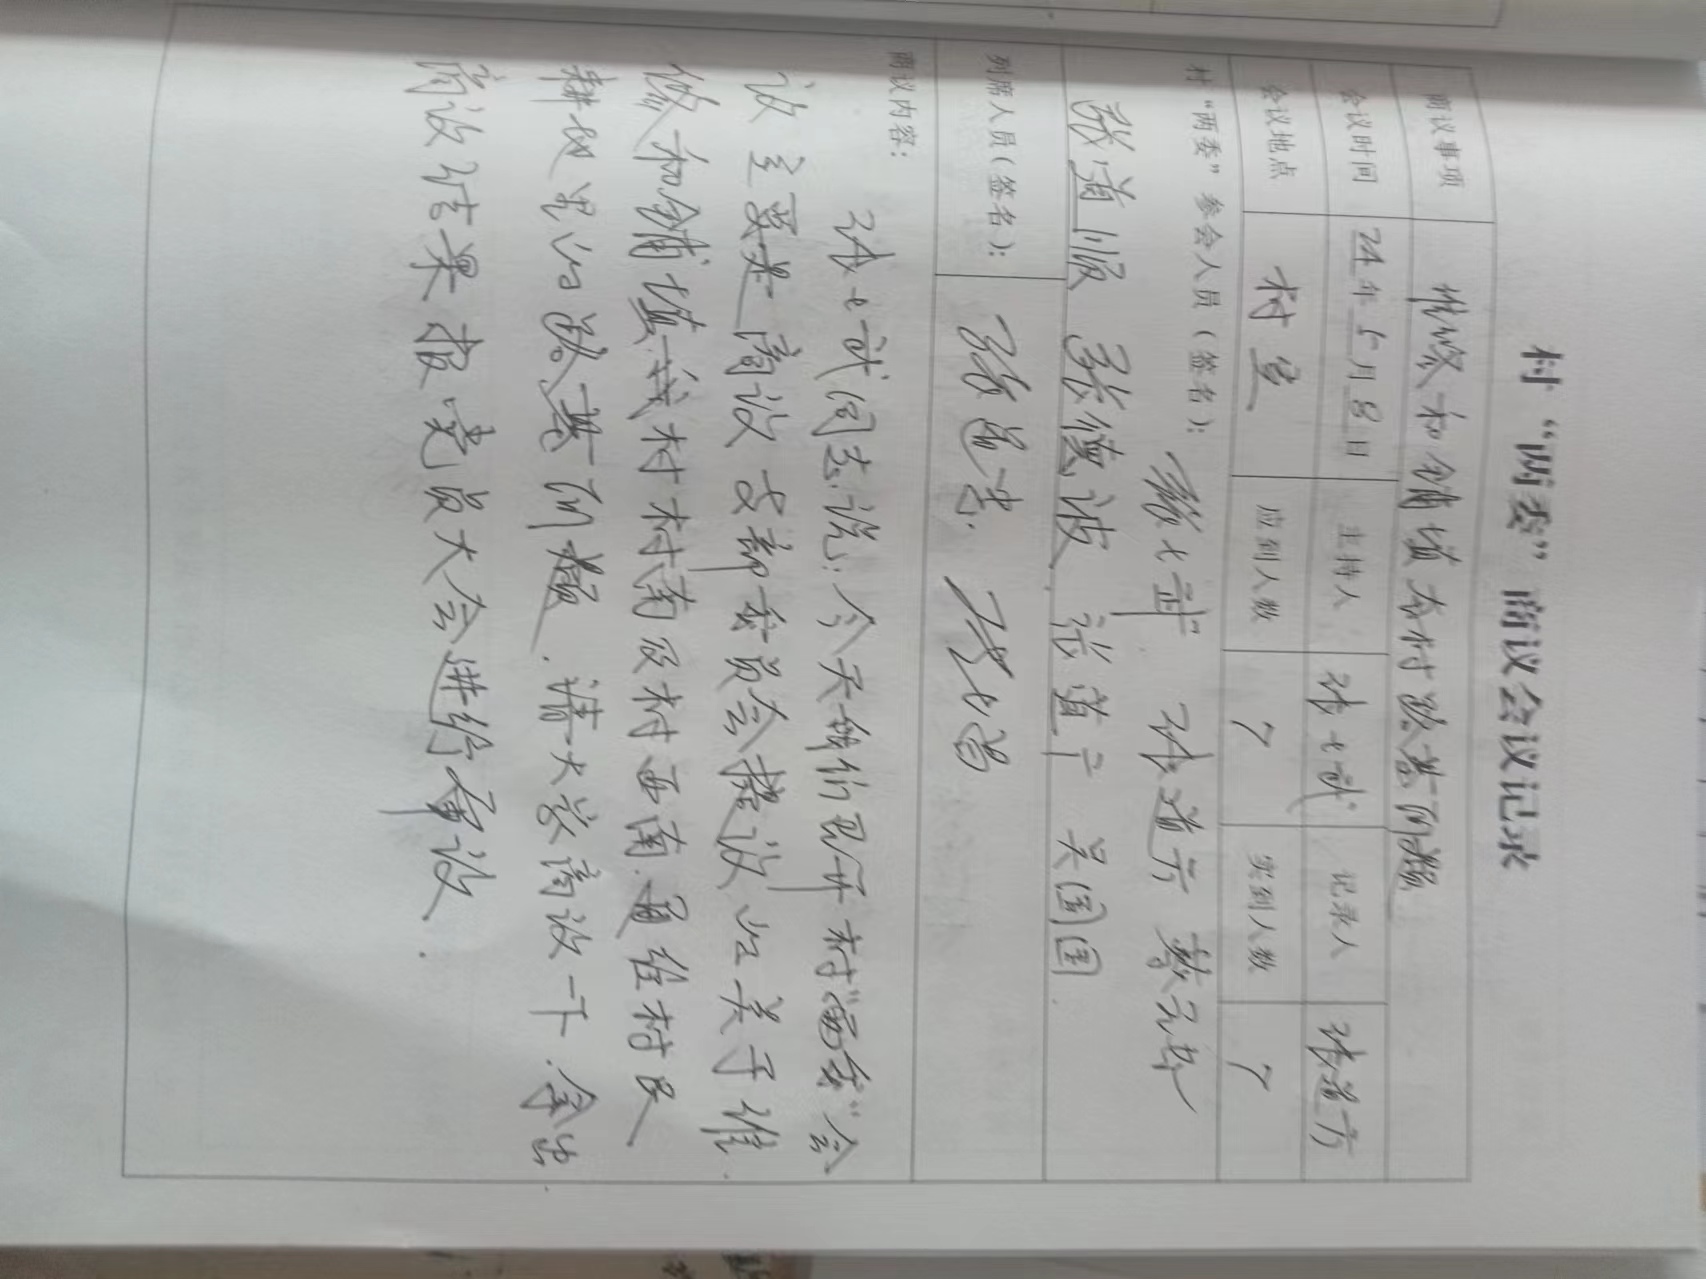 村“两委”商议会议记录
商议事项 维修和铺填本村路若问题
会议时间 24年5月8日 主持人 张七武 记录人 张道方
会议地点 村室 应到人数 7 实到人数 7
村“两委”参会人员(签名):张七武 张道方
张道顺 张德波 张道 吴国国
列席人员(签名):张
商议内容:
张七武同志说:今天我们召开村“两委”会
议主要是商议支部委员会提议 关于维
修和铺填我村村南及村西南 村民
的路若问题.请大家商议一下.拿出
商议结果报党员大会进行审议.